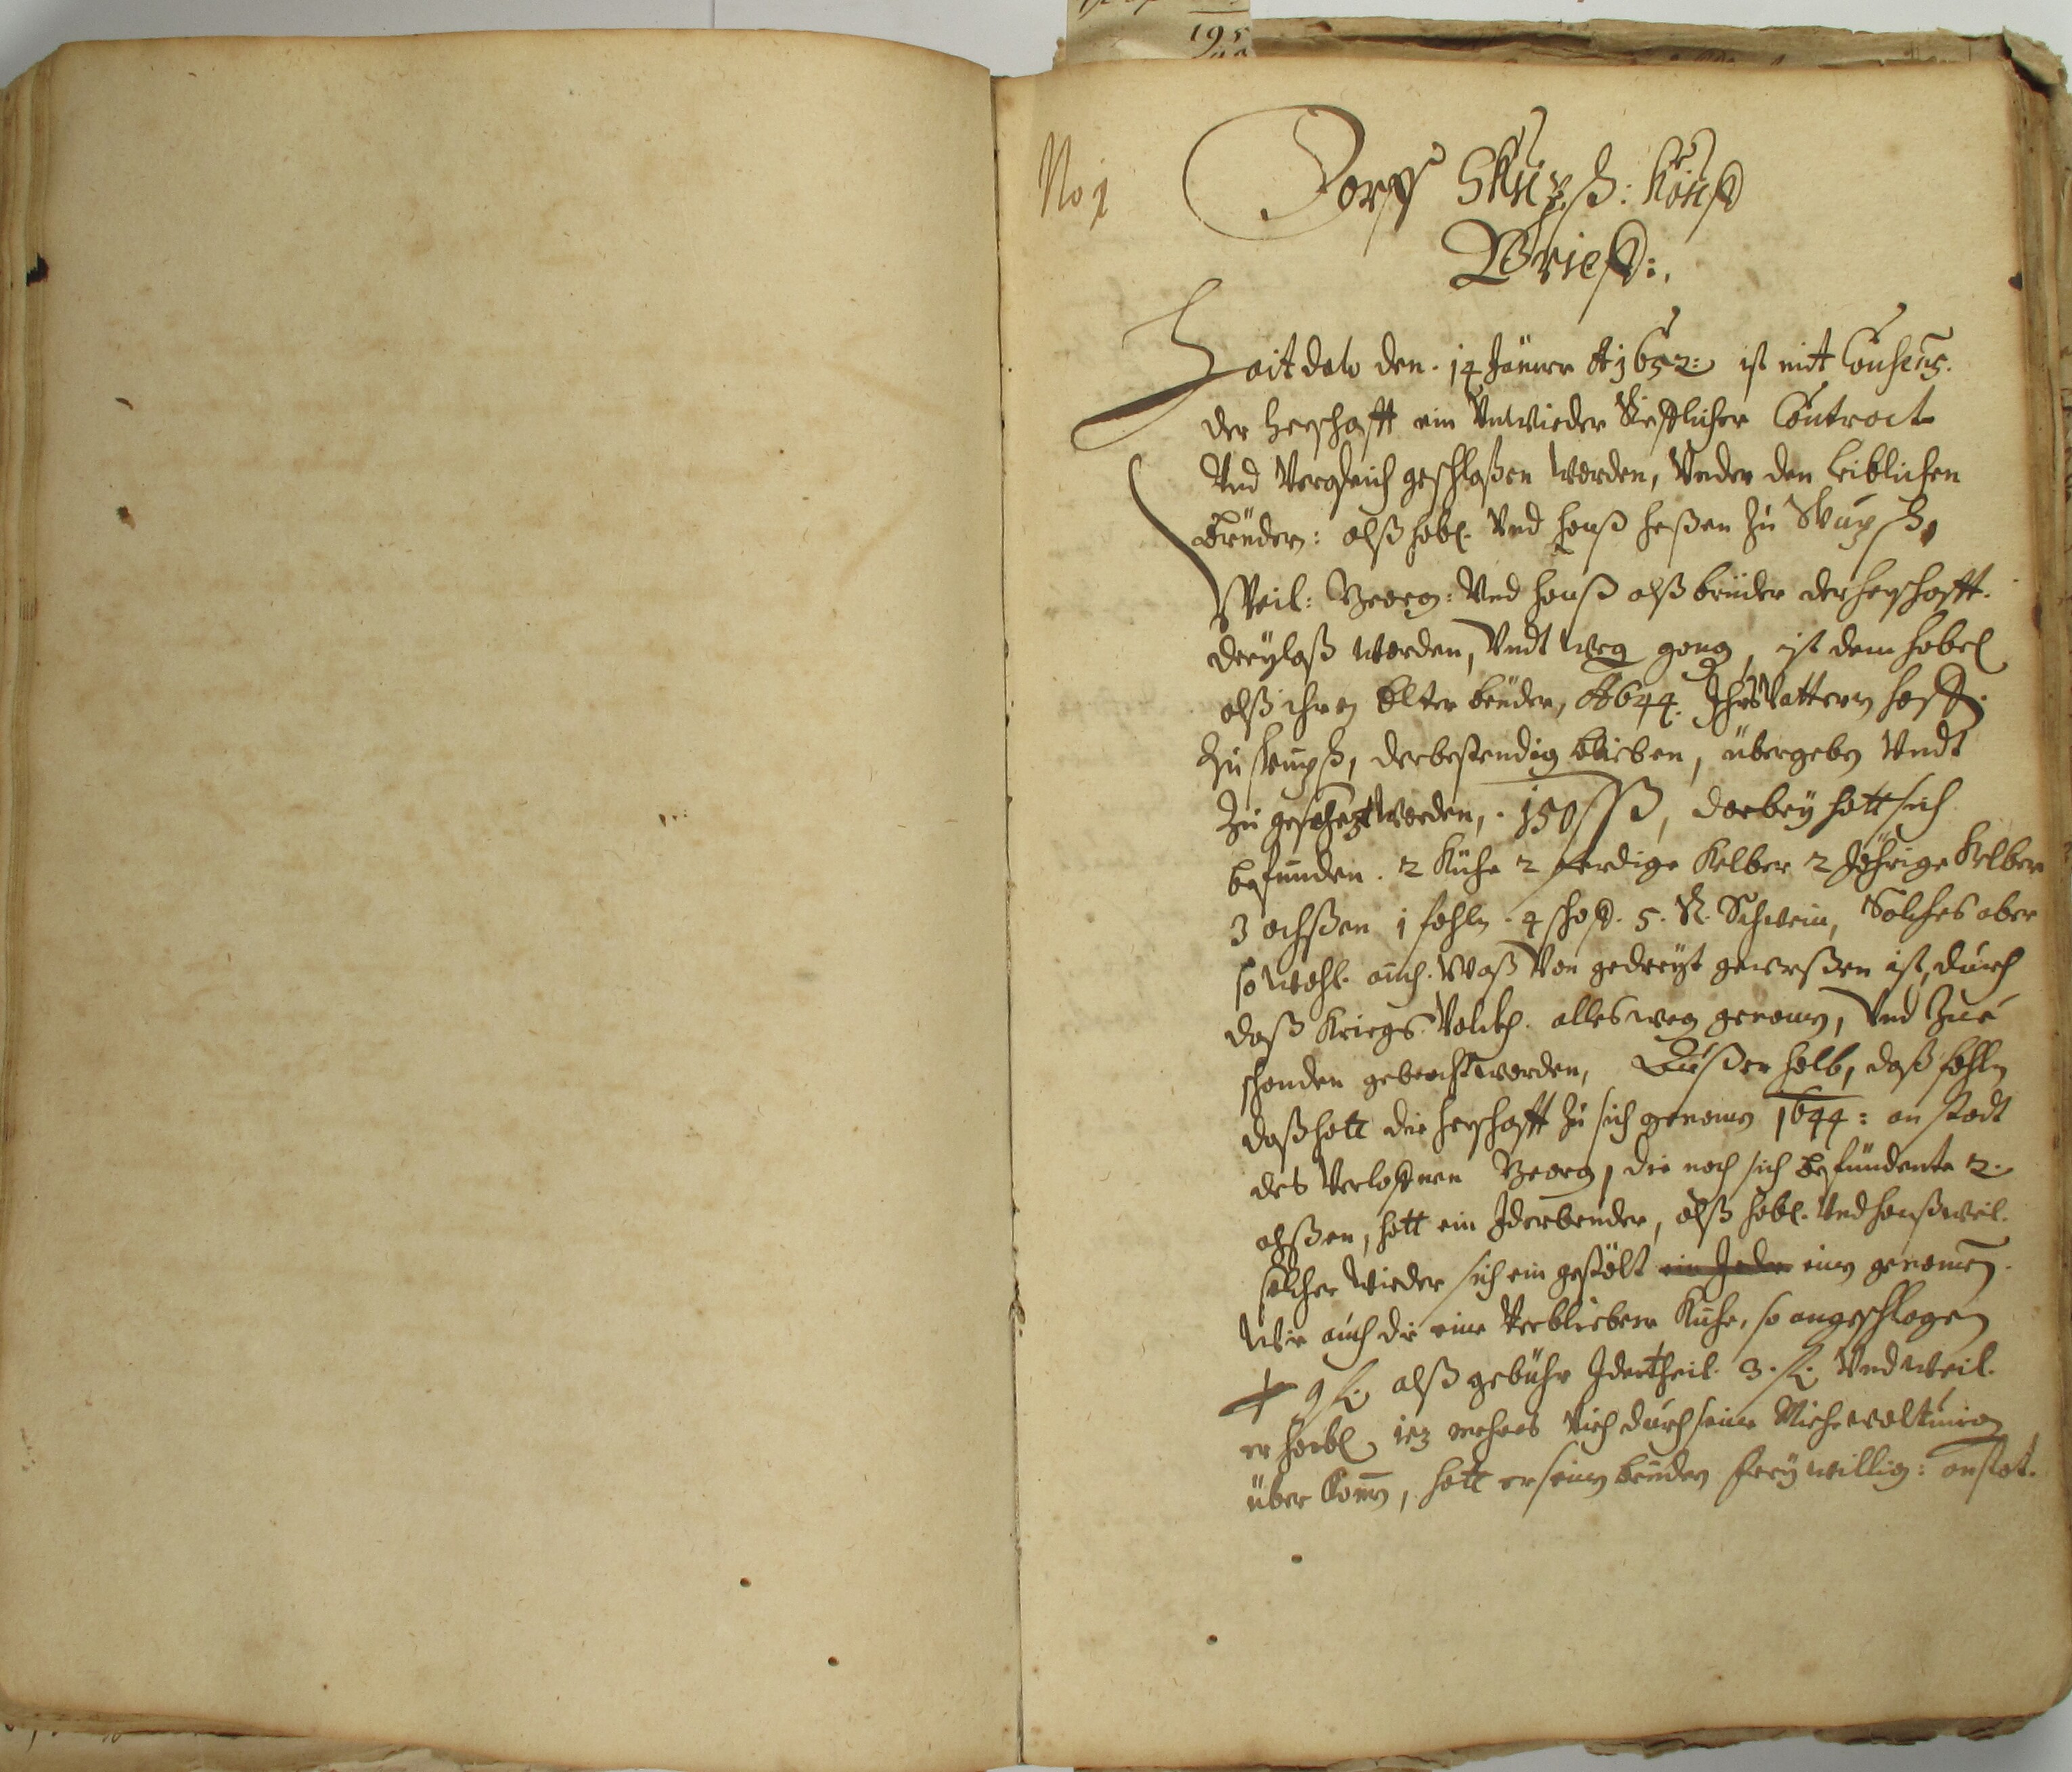 195
No 1
Dorff Skupß: Kauff
Brieff:
Heit dato den. 14 Januer A 1652: ist mitt Consens.
der herschafft ein Unwieder Rufflicher Contract
Und Vergleich geschloßen worden, Under den Leiblichen
Brüdern: alß Habel Und Hanß heßen zu Skupß,
Weil: Georg: Und Hanß alß brüder der herschafft.
worden, Undt weg gang, ist dem Habel
alß ihren Elter bruder, A 644. Ihrs Vattern hoff.
zu Skupß, der bestendig blieben, übergeben Undt
zu geschezt worden, . 150 ßß, darbey hatt sich
befunden. 2 Kühe 2 ferdige Kelber 2 Jährige Kelber
3 ochßen 1 fohln. 4 schoff. 5. St. Schwein, Solches aber
so wohl. auch. Waß Von gedreyt geweßen ist, durch
daß Kriegs Volckh. alles weg genomn, Und Zue
schanden gebracht worden, Außer halb, daß fohln
daß hatt die herschafft zu sich genomn 1644: an stadt
des Verloffnen Georg, die noch sich befundente 2.
ochßen, hatt ein Jder bruder, alß Habel. Und Hanß weil.
solcher wieder sich ein gestölt ein Jeder ein genomen.
Wie auch die eine Verbliebene Kuhe, so angeschlagen
9 ß alß gebühr Jdertheil. 3. ß Und weil.
er Habel iez mehres Vieh durch seine
über komn, hatt er seinen bruder frey willig: anstat.